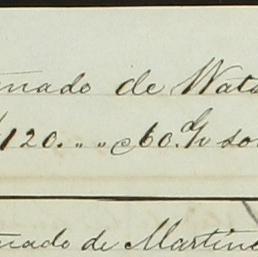 nado de Wats
120. " " c 60. gr son
nado de Martine